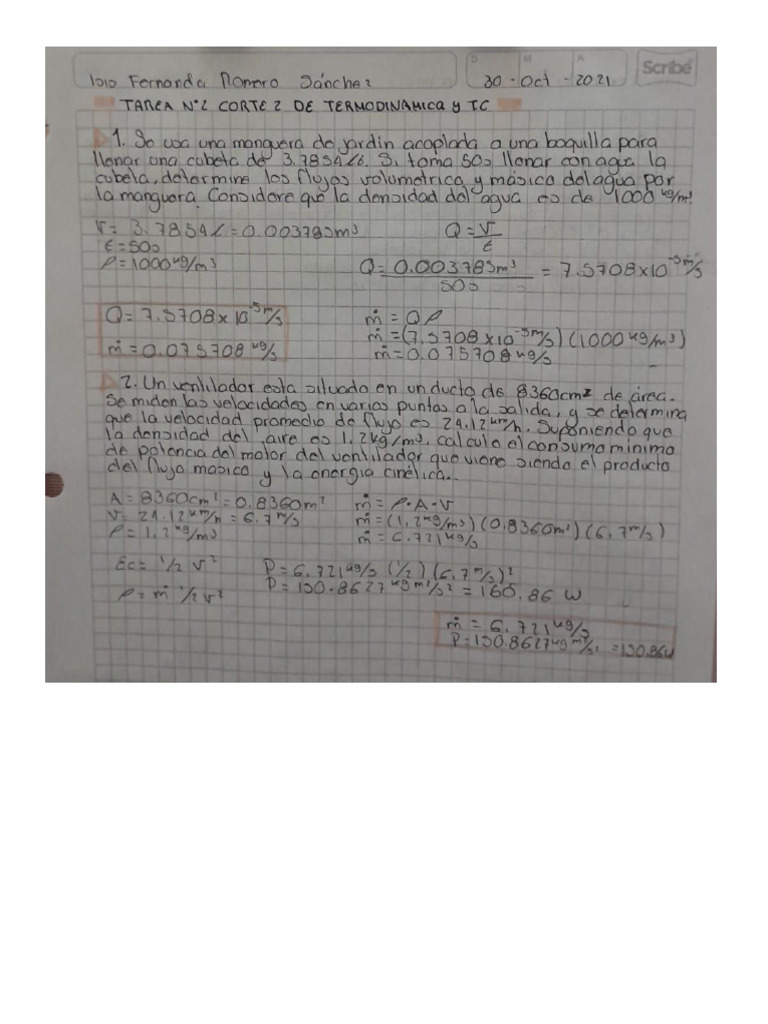 Fernanda Romero Sánchez
D M A
30-Oct-2021
Scribe
TAREA N°2 CORTE 2 DE TERMODINAMICA y TC
1. Se usa una manguera de jardin acoplada a una boquilla para
llenar una cubeta de 3.7854 L. Si toma 50s llenar con agua la
cubeta, determine los flujos volumetrico y másico del agua por
la manguera. Considere que la densidad del agua es de 1000 kg/m³
V= 3.7854L=0.003785m³
Q=V/t
t=50s
ρ=1000kg/m³
Q=0.003785m³/50s = 7.5708x10⁻⁵m³/s
Q=7.5708x10⁻⁵m³/s
ṁ=Qρ
ṁ=(7.5708x10⁻⁵m³/s)(1000kg/m³)
ṁ=0.075708kg/s
ṁ=0.075708kg/s
2. Un ventilador esta situado en un ducto de 8360cm² de área.
Se miden las velocidades en varias puntos a la salida, y se determina
que la velocidad promedio de flujo es 24.12km/h. Suponiendo que
la densidad del aire es 1.2kg/m³, calcule el consumo minimo
de potencia del motor del ventilador que viene siendo el producto
del flujo masico y la energia cinética.
A=8360cm²=0.8360m²
ṁ=ρ·A·v
V=24.12km/h=6.7m/s
ṁ=(1.2kg/m³)(0.8360m²)(6.7m/s)
ρ=1.2kg/m³
ṁ=6.721kg/s
Ec= 1/2 v²
P=6.721kg/s (1/2)(6.7m/s)²
P=ṁ 1/2 v²
P=150.8627kgm²/s² =160.86 W
ṁ=6.721kg/s
P=150.8627kgm²/s² =150.86W